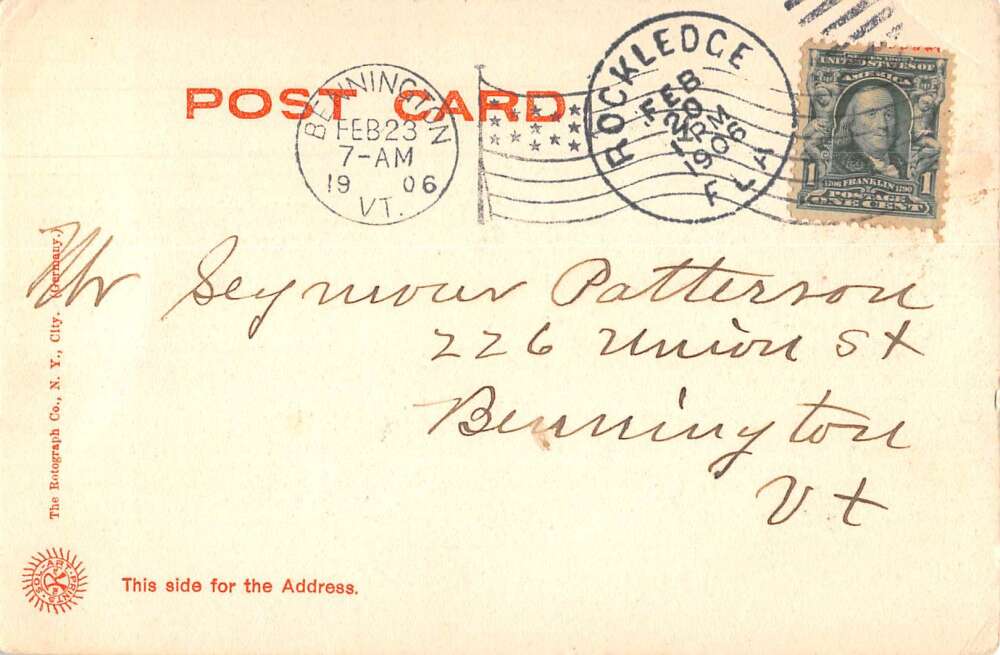 POST CARD
BENNINGTON
FEB 23
7-AM
19 06
VT.
ROCKLEDGE
FEB
20
1906
FLA
UNITED STATES OF
AMERICA
1 1706 FRANKLIN 1790 1
POSTAGE
ONE CENT
Mr Seymour Patterson
226 Union St
Bennington
Vt
The Rotograph Co., N. Y., City. (Germany.)
SOL-ART-PRINTS
This side for the Address.